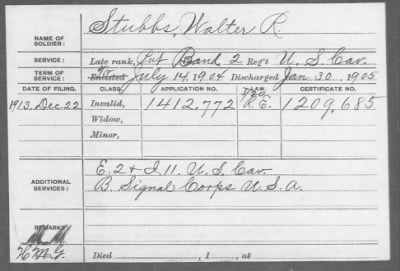 NAME OF SOLDIER: Stubbs, Walter R.
SERVICE: Late rank, Pvt Band 2 Reg't U. S. Cav.
TERM OF SERVICE: Enlisted July 14, 1904 Discharged Jan 30, 1905
DATE OF FILING. CLASS. APPLICATION NO. LAW. CERTIFICATE NO.
1913. Dec 22 Invalid, 1412,772 R.E. 1209,685
Widow,
Minor,
ADDITIONAL SERVICES: E. 2 & I. 11. U. S. Cav.
B. Signal Corps U. S. A.
REMARKS:
Died , 1 , at